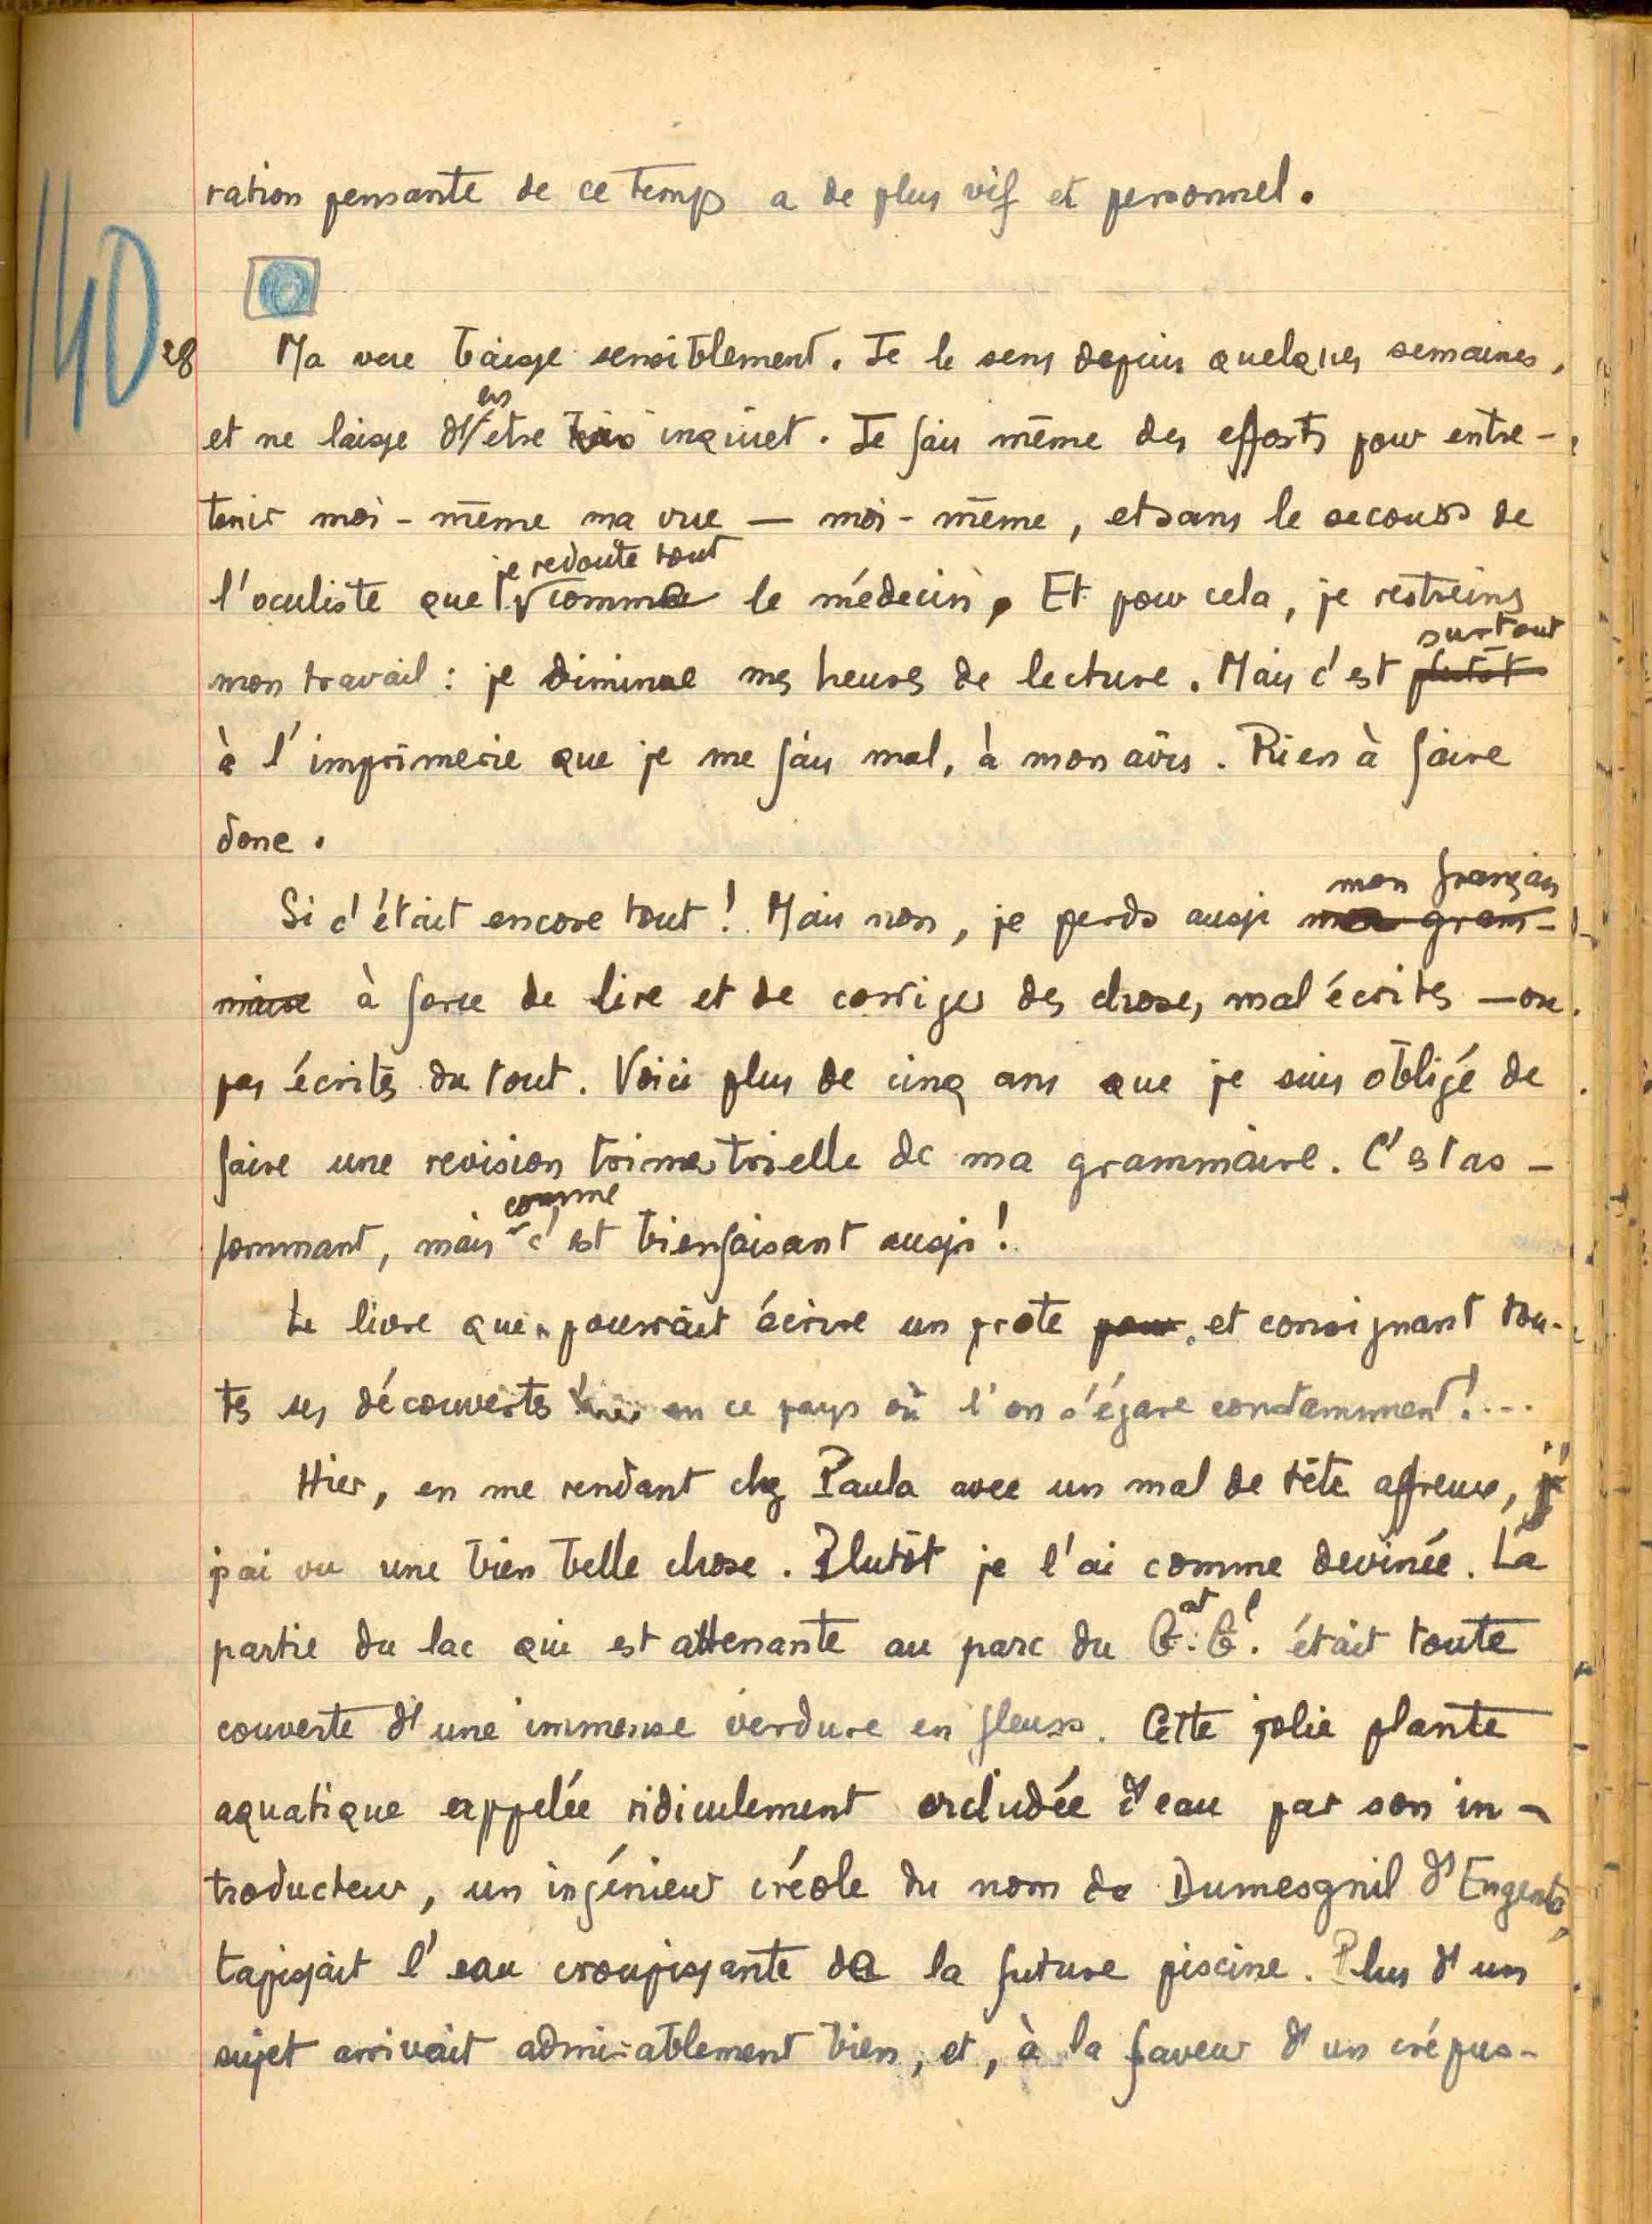 140
ration pensante de ce temps a de plus vif et personnel.
28 Ma vue baisse sensiblement. Je le sens depuis quelques semaines,
et ne laisse d'en être inquiet. Je fais même des efforts pour entre-
tenir moi-même ma vue — moi-même, et sans le secours de
l'oculiste que je redoute tout comme le médecin. Et pour cela, je restreins
mon travail : je diminue mes heures de lecture. Mais c'est plutôt surtout
à l'imprimerie que je me fais mal, à mon avis. Rien à faire
donc.
Si c'était encore tout ! Mais non, je perds aussi ma gram- mon français
maire à force de lire et de corriger des choses mal écrites — ou
pas écrites du tout. Voici plus de cinq ans que je suis obligé de
faire une revision trimestrielle de ma grammaire. C'est as-
sommant, mais comme c'est bienfaisant aussi !
Le livre que pourrait écrire un prote pour, et consignant tou-
tes ses découvertes en ce pays où l'on s'égare constamment !...
Hier, en me rendant chez Paula avec un mal de tête affreux, j'
j'ai vu une bien belle chose. Plutôt je l'ai comme devinée. La
partie du lac qui est attenante au parc du Gat. Gl. était toute
couverte d'une immense verdure en fleurs. Cette jolie plante
aquatique appelée ridiculement orchidée d'eau par son in-
troducteur, un ingénieur créole du nom de Dumesgnil d'Engente,
tapissait l'eau croupissante de la future piscine. Plus d'un
sujet arrivait admirablement bien, et, à la faveur d'un crépus-